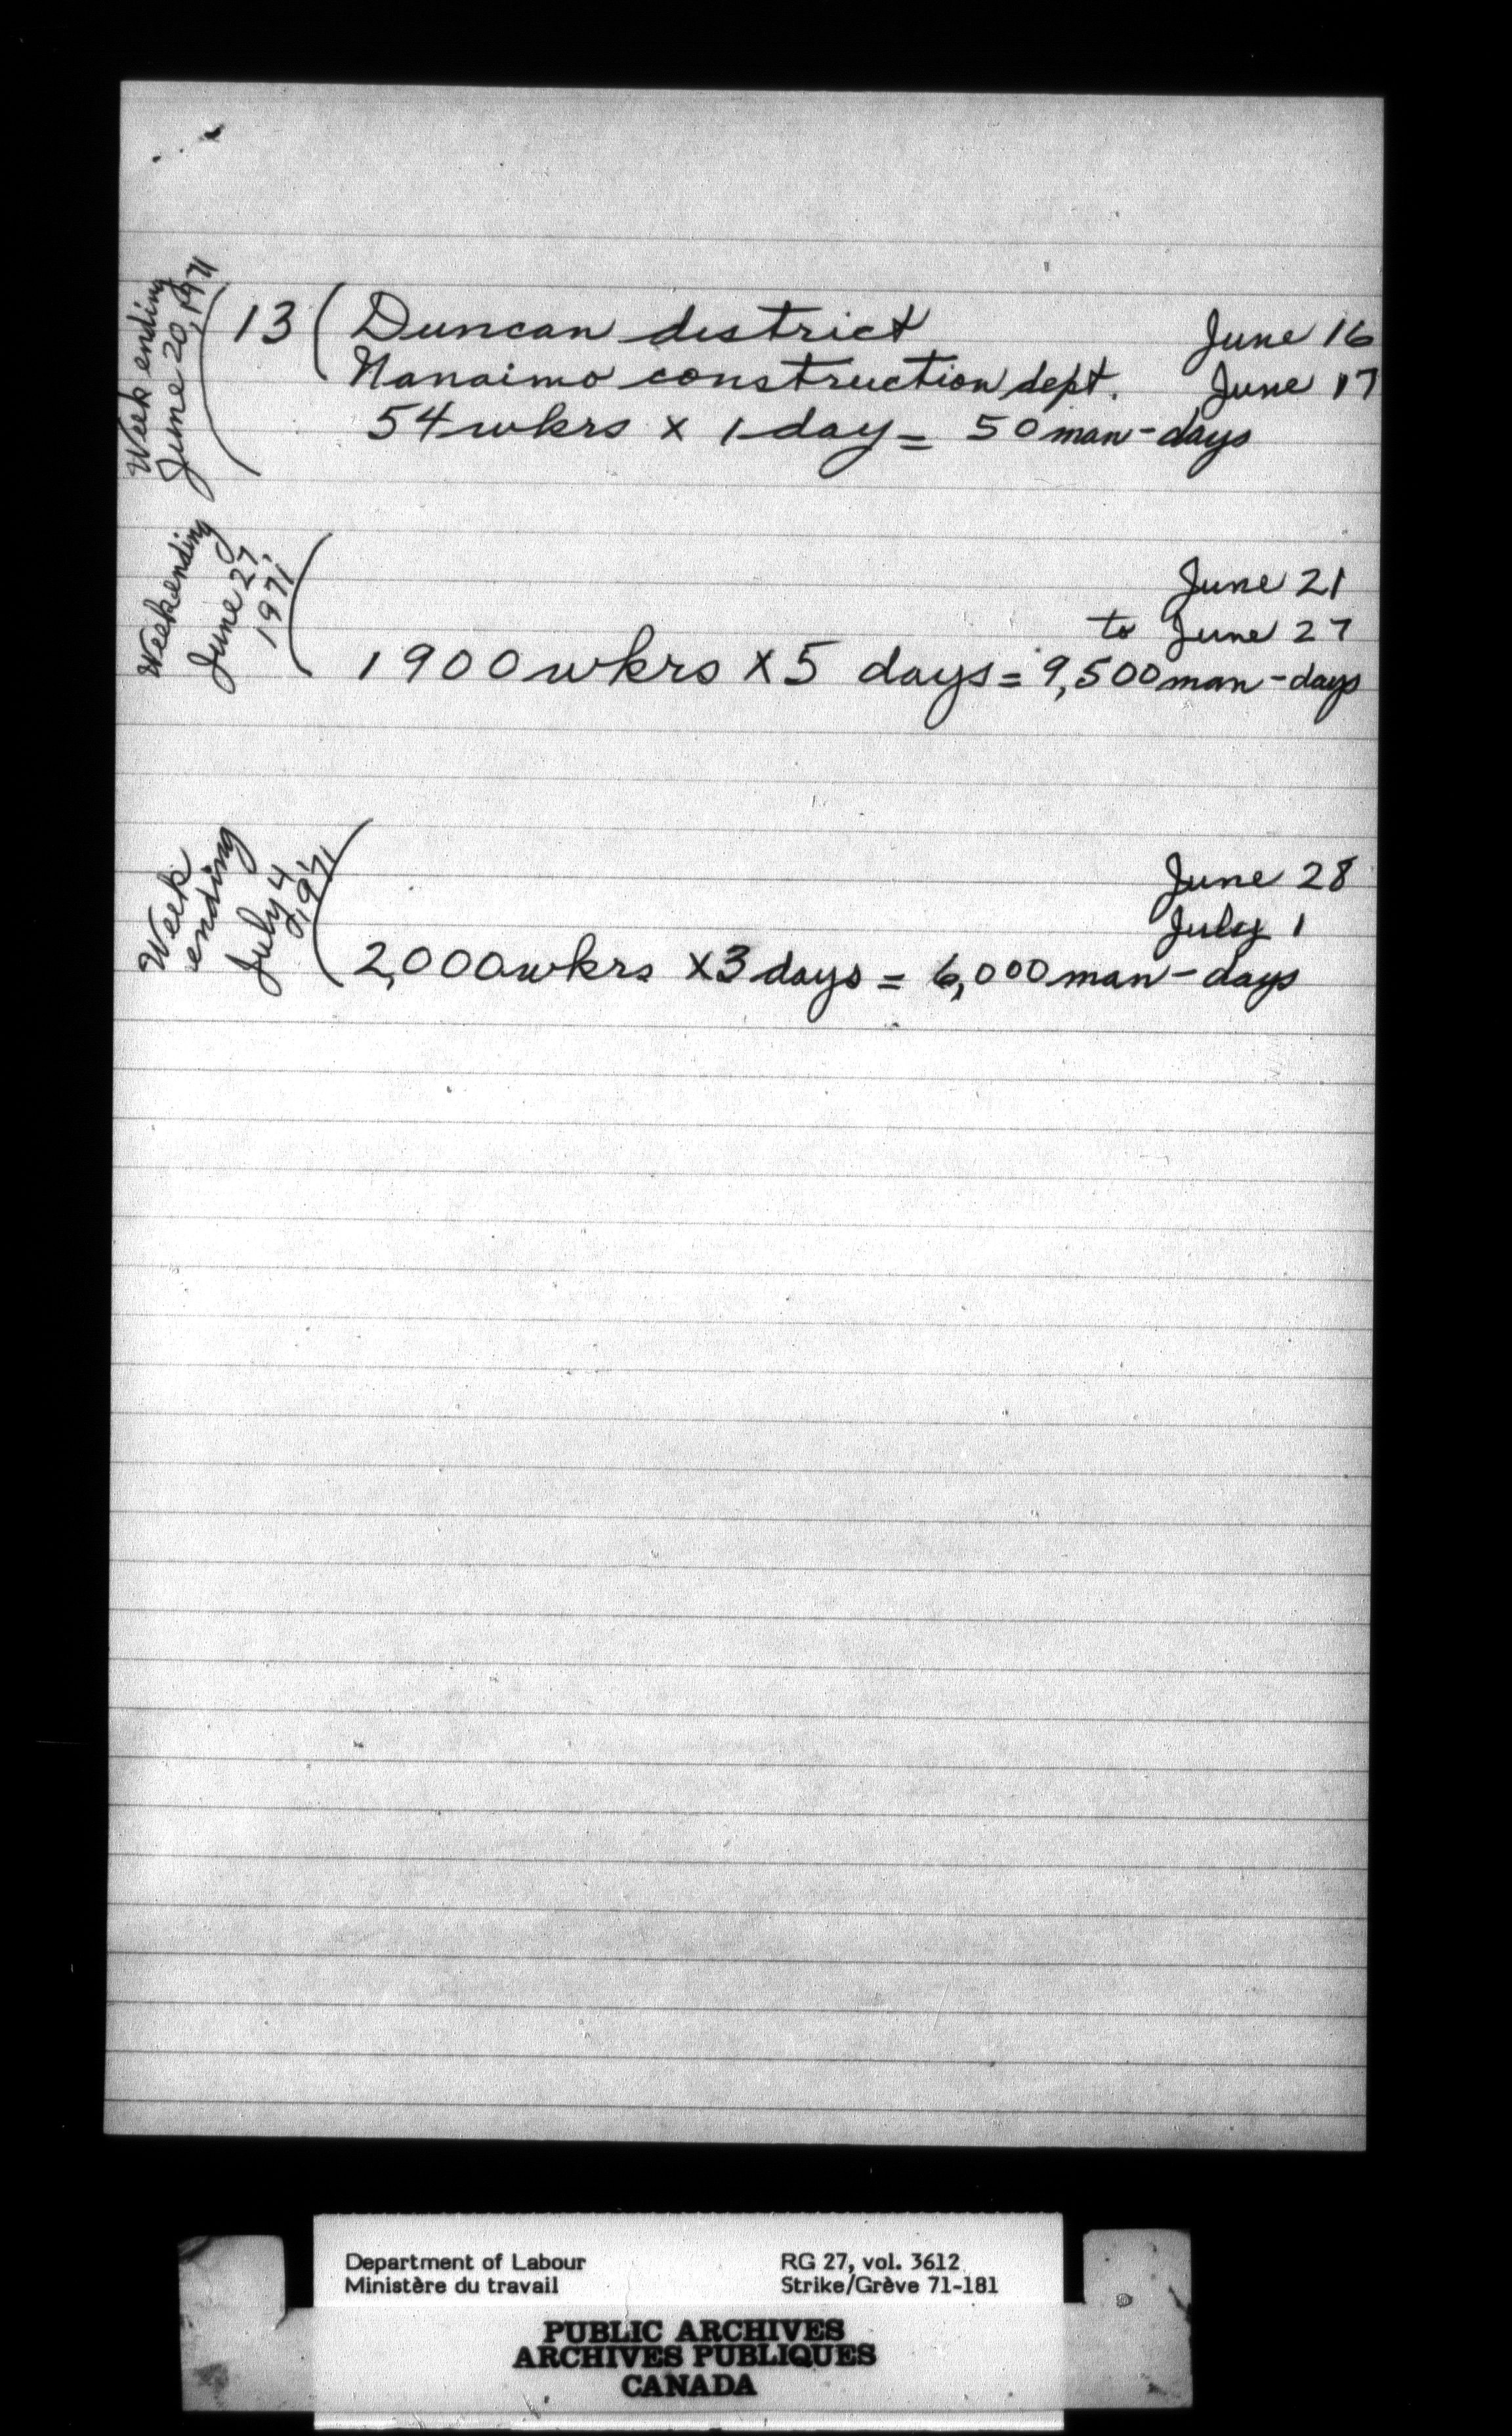 Week ending
June 20, 1971
13 ( Duncan district June 16
Nanaimo construction dept. June 17
54 wkrs x 1 day = 50 man-days
Week ending
June 27,
1971
June 21
to June 27
1900 wkrs x 5 days = 9,500 man-days
Week
ending
July 4
1971
June 28
July 1
2,000 wkrs x 3 days = 6,000 man-days
Department of Labour RG 27, vol. 3612
Ministère du travail Strike/Grève 71-181
PUBLIC ARCHIVES
ARCHIVES PUBLIQUES
CANADA